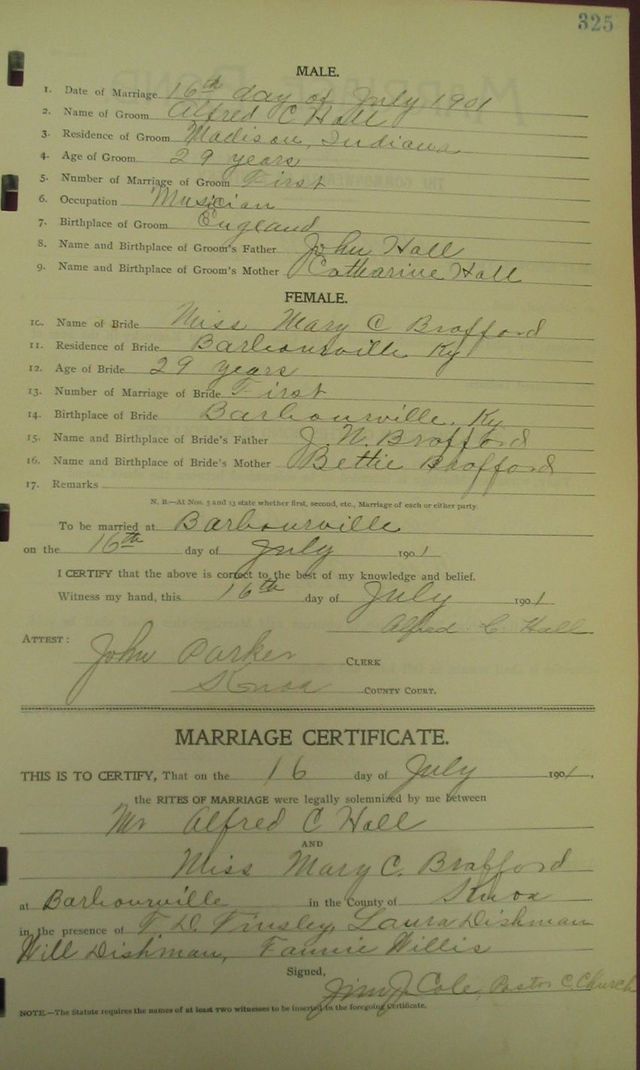 325
MALE.
1. Date of Marriage 16th day of July 1901
2. Name of Groom Alfred C Hall
3. Residence of Groom Madison, Indiana
4. Age of Groom 29 years
5. Number of Marriage of Groom First
6. Occupation Musician
7. Birthplace of Groom England
8. Name and Birthplace of Groom's Father John Hall
9. Name and Birthplace of Groom's Mother Catharine Hall
FEMALE.
10. Name of Bride Miss Mary C Brafford
11. Residence of Bride Barbourville Ky
12. Age of Bride 29 years
13. Number of Marriage of Bride First
14. Birthplace of Bride Barbourville, Ky
15. Name and Birthplace of Bride's Father J. N. Brafford
16. Name and Birthplace of Bride's Mother Bettie Brafford
17. Remarks
N. B.—At Nos. 5 and 13 state whether first, second, etc., Marriage of each or either party.
To be married at Barbourville
on the 16th day of July 1901
I CERTIFY that the above is correct to the best of my knowledge and belief.
Witness my hand, this 16th day of July 1901
Alfred C. Hall
ATTEST: John Parker CLERK
Knox COUNTY COURT.
MARRIAGE CERTIFICATE.
THIS IS TO CERTIFY, That on the 16 day of July 1901,
the RITES OF MARRIAGE were legally solemnized by me between
Mr Alfred C Hall
AND
Miss Mary C. Brafford
at Barbourville in the County of Knox
in the presence of T. D. Tinsley, Laura Dishman
Will Dishman, Fannie Willis
Signed,
Jim J. Cole, Pastor C. Church
NOTE.—The Statute requires the names of at least two witnesses to be inserted in the foregoing Certificate.